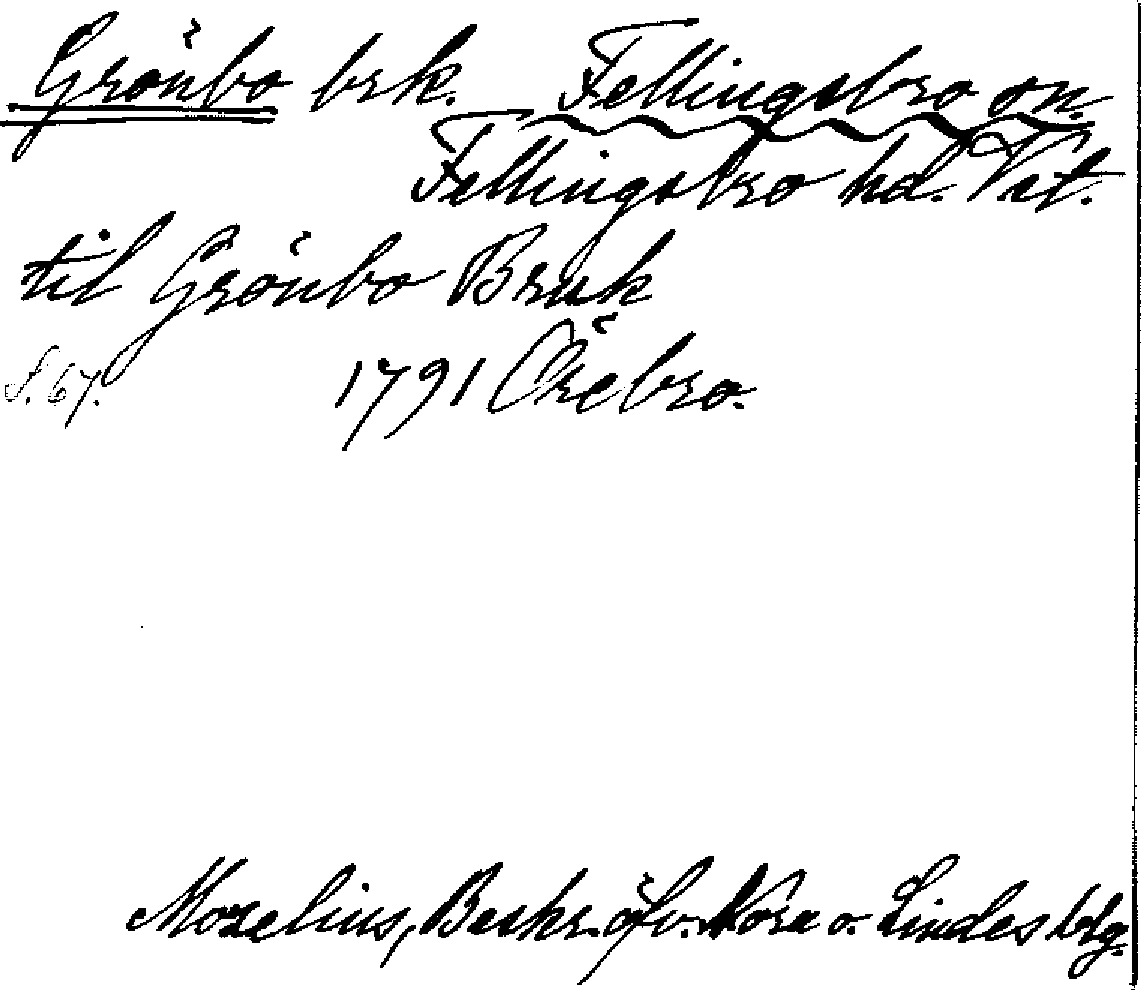 Grönbo brk. Fellingsbro sn.
Fellingsbro hd. Vstm.
til Grönbo Bruk
S. 67. 1791 Örebro.
Morelius, Beskr. öfv. Nora o. Lindes bslg.